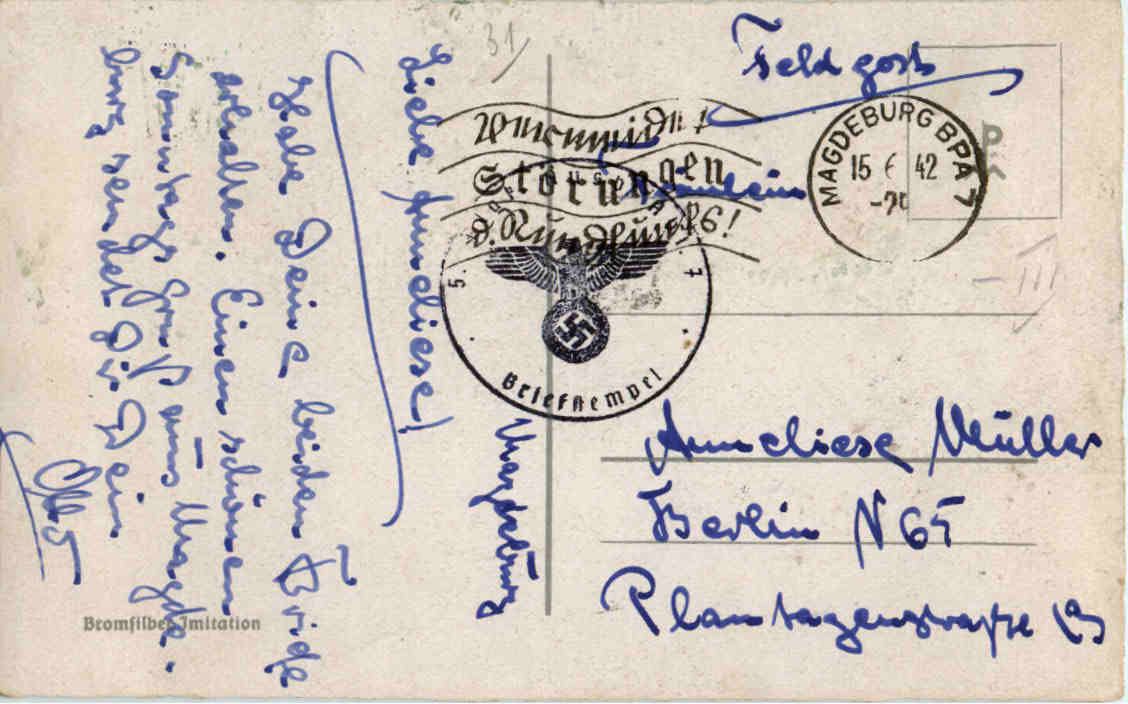 31
Feldpost
Vermeidet
Störungen
d. Rundfunks!
MAGDEBURG BPA 7
15 6 42
Fräulein
5.
Briefstempel
III
Anneliese Müller
Berlin N 65
Plantagenstraße 19
Magdeburg
Liebe Anneliese!
Habe Deine beiden Briefe
erhalten. Einen schönen
Sonntags Gruß aus Magde-
burg sendet Dir Dein
Otto
Bromsilber-Imitation